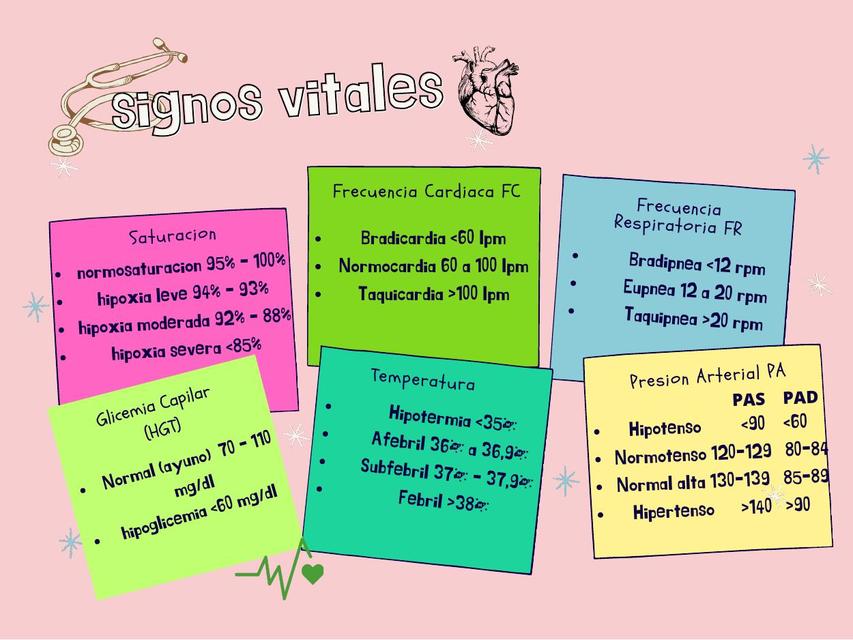 signos vitales
Saturacion
• normosaturacion 95% - 100%
• hipoxia leve 94% - 93%
• hipoxia moderada 92% - 88%
• hipoxia severa <85%
Frecuencia Cardiaca FC
• Bradicardia <60 lpm
• Normocardia 60 a 100 lpm
• Taquicardia >100 lpm
Frecuencia
Respiratoria FR
• Bradipnea <12 rpm
• Eupnea 12 a 20 rpm
• Taquipnea >20 rpm
Glicemia Capilar
(HGT)
• Normal (ayuno) 70 - 110
mg/dl
• hipoglicemia <60 mg/dl
Temperatura
• Hipotermia <35
• Afebril 36 a 36,9
• Subfebril 37 - 37,9
• Febril >38
Presion Arterial PA
PAS PAD
• Hipotenso <90 <60
• Normotenso 120-129 80-84
• Normal alta 130-139 85-89
• Hipertenso >140 >90